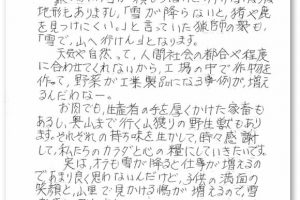 地形もありますし、「雪が降らないと、猪や鹿
を見つけにくい。」と言っていた猟師の親も、
「雪で、山へ行けん」となります。
天気や自然って、人間社会の都合や程度
に合わせてくれないから、工場の中で作物を
作って、野菜が工業製品になる事例が、増え
るんだわなー。
お肉でも、生産者の手を厚くかけた家畜も
あるし、奥山まで行く山獲りの野生獣もあり
ます。それぞれの持ち味を生かして、時々感謝
して、私たちのカラダと心の糧にしていきたいです。
実は、オラも雪が降ると仕事が増えるの
であまり良く思わないんだけど、子供の満面の
笑顔と、山里で見かける鳥が増えるので、雪